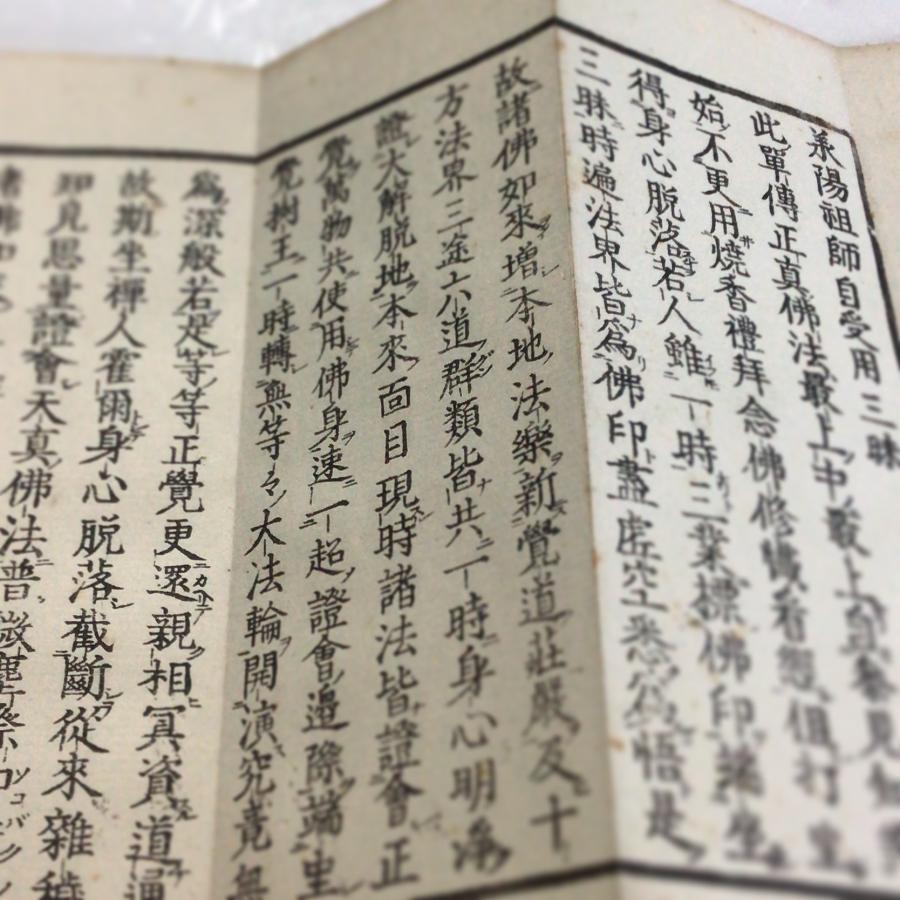 承陽祖師自受用三昧
此單傳正真佛法最上中最上自參見知
始不更用燒香禮拜念佛修懺看經但打坐
得身心脫落若人雖一時三業標佛印端坐
三昧時遍法界皆爲佛印盡虛空悉爲悟是
故諸佛如來增本地法樂新覺道莊嚴及十
方法界三途六道群類皆共一時身心明淨
證大解脫地本來面目現時諸法皆證會正
覺萬物共使用佛身速一超證會邊際端坐
覺樹王一時轉無等々大法輪開演究竟無
爲深般若是等等正覺更還親相冥資道通
故斯坐禪人霍爾身心脫落截斷從來雜穢
知見思量證會天真佛法普